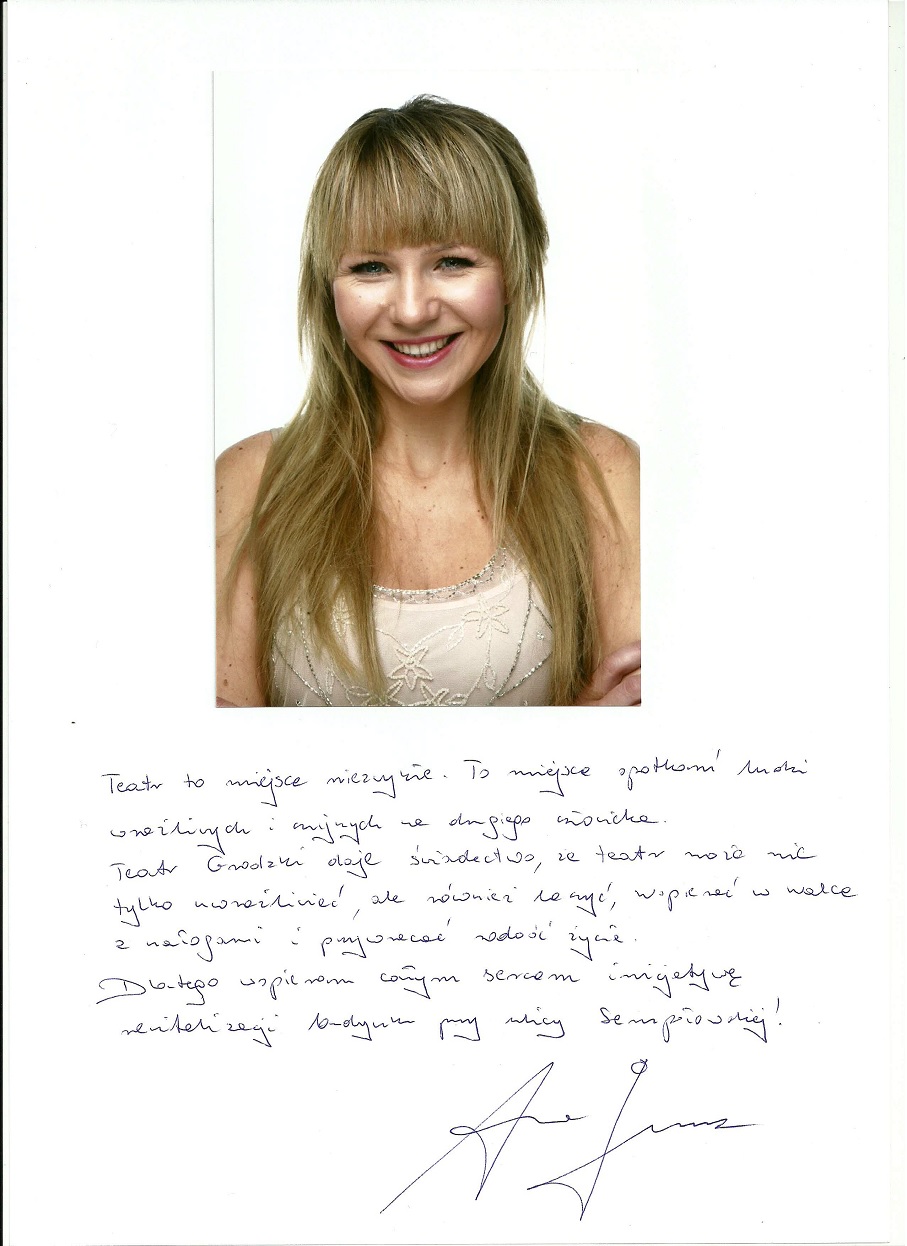 Teatr to miejsce niezwykłe. To miejsce spotkań ludzi
wrażliwych i czujnych na drugiego człowieka.
Teatr Grodzki daje świadectwo, że teatr może nie
tylko uwrażliwiać, ale również leczyć, wspierać w walce
z nałogami i przywracać radość życia.
Dlatego wspieram całym sercem inicjatywę
rewitalizacji budynku przy ulicy Sempołowskiej!